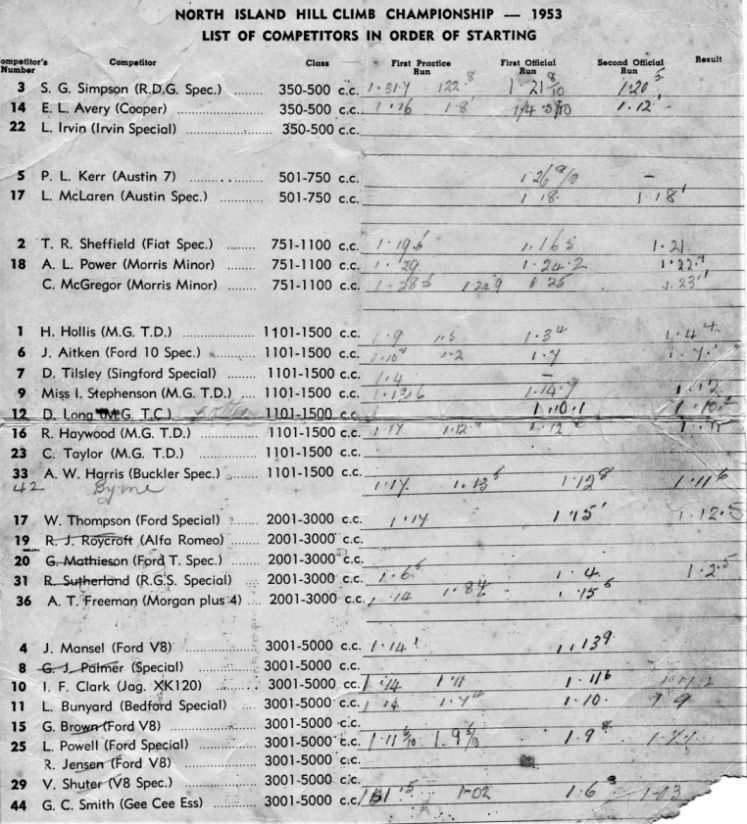 NORTH ISLAND HILL CLIMB CHAMPIONSHIP — 1953
LIST OF COMPETITORS IN ORDER OF STARTING
ompetitor's Number Competitor Class First Practice Run First Official Run Second Official Run Result
3 S. G. Simpson (R.D.G. Spec.) ........ 350-500 c.c. 1·31·7 122·8 1·21 8/10 1·20 5
14 E. L. Avery (Cooper) .................. 350-500 c.c. 1·16 1·8 1·12
22 L. Irvin (Irvin Special) ................ 350-500 c.c.
5 P. L. Kerr (Austin 7) .................. 501-750 c.c. 1·26 –
17 L. McLaren (Austin Spec.) ........... 501-750 c.c. 1·18 1·18
2 T. R. Sheffield (Fiat Spec.) ........ 751-1100 c.c. 1·19 1·16 5 1·21
18 A. L. Power (Morris Minor) ........ 751-1100 c.c. 1·29 1·24·2 1·22
C. McGregor (Morris Minor) ........ 751-1100 c.c. 25 1·23
1 H. Hollis (M.G. T.D.) .................... 1101-1500 c.c. 1·9 1·5 1·3 4 1·4 4
6 J. Aitken (Ford 10 Spec.) ........... 1101-1500 c.c. 1·2 1·7
7 D. Tilsley (Singford Special) ........ 1101-1500 c.c. 1·4 –
9 Miss I. Stephenson (M.G. T.D.) .... 1101-1500 c.c. 1·14·7 1·12
12 D. Long (M.G. T.C.) 1101-1500 c.c. 1·10·1
16 R. Haywood (M.G. T.D.) .............. 1101-1500 c.c. 1·17 1·12 1·12
23 C. Taylor (M.G. T.D.) ................ 1101-1500 c.c.
33 A. W. Harris (Buckler Spec.) ........ 1101-1500 c.c.
42 Byrne 1·17 1·13 5 1·12 8 1·11 6
17 W. Thompson (Ford Special) ........ 2001-3000 c.c. 1·14 1·15 1·12·5
19 R. J. Roycroft (Alfa Romeo) ........ 2001-3000 c.c.
20 G. Mathieson (Ford T. Spec.) ...... 2001-3000 c.c.
31 R. Sutherland (R.G.S. Special) ...... 2001-3000 c.c. 1·6 1·4 1·2·5
36 A. T. Freeman (Morgan plus 4) .... 2001-3000 c.c. 14 1·8 ·15 6
4 J. Mansel (Ford V8) .................. 3001-5000 c.c. 1·14 1·13 9
8 G. J. Palmer (Special) ................ 3001-5000 c.c.
10 I. F. Clark (Jag. XK120) ............ 3001-5000 cc. 1·14 1·11 1·11 6
11 L. Bunyard (Bedford Special) ...... 3001-5000 c.c. 1·14 1·10 9
15 G. Brown (Ford V8) .................. 3001-5000 c.c.
25 L. Powell (Ford Special) ............ 3001-5000 c.c. 1·11 1·9 1·9 8
R. Jensen (Ford V8) .................. 3001-5000 c.c.
29 V. Shuter (V8 Spec.) ................ 3001-5000 c.c.
44 G. C. Smith (Gee Cee Ess) ........ 3001-5000 c.c. 1·02 1·6 1·13